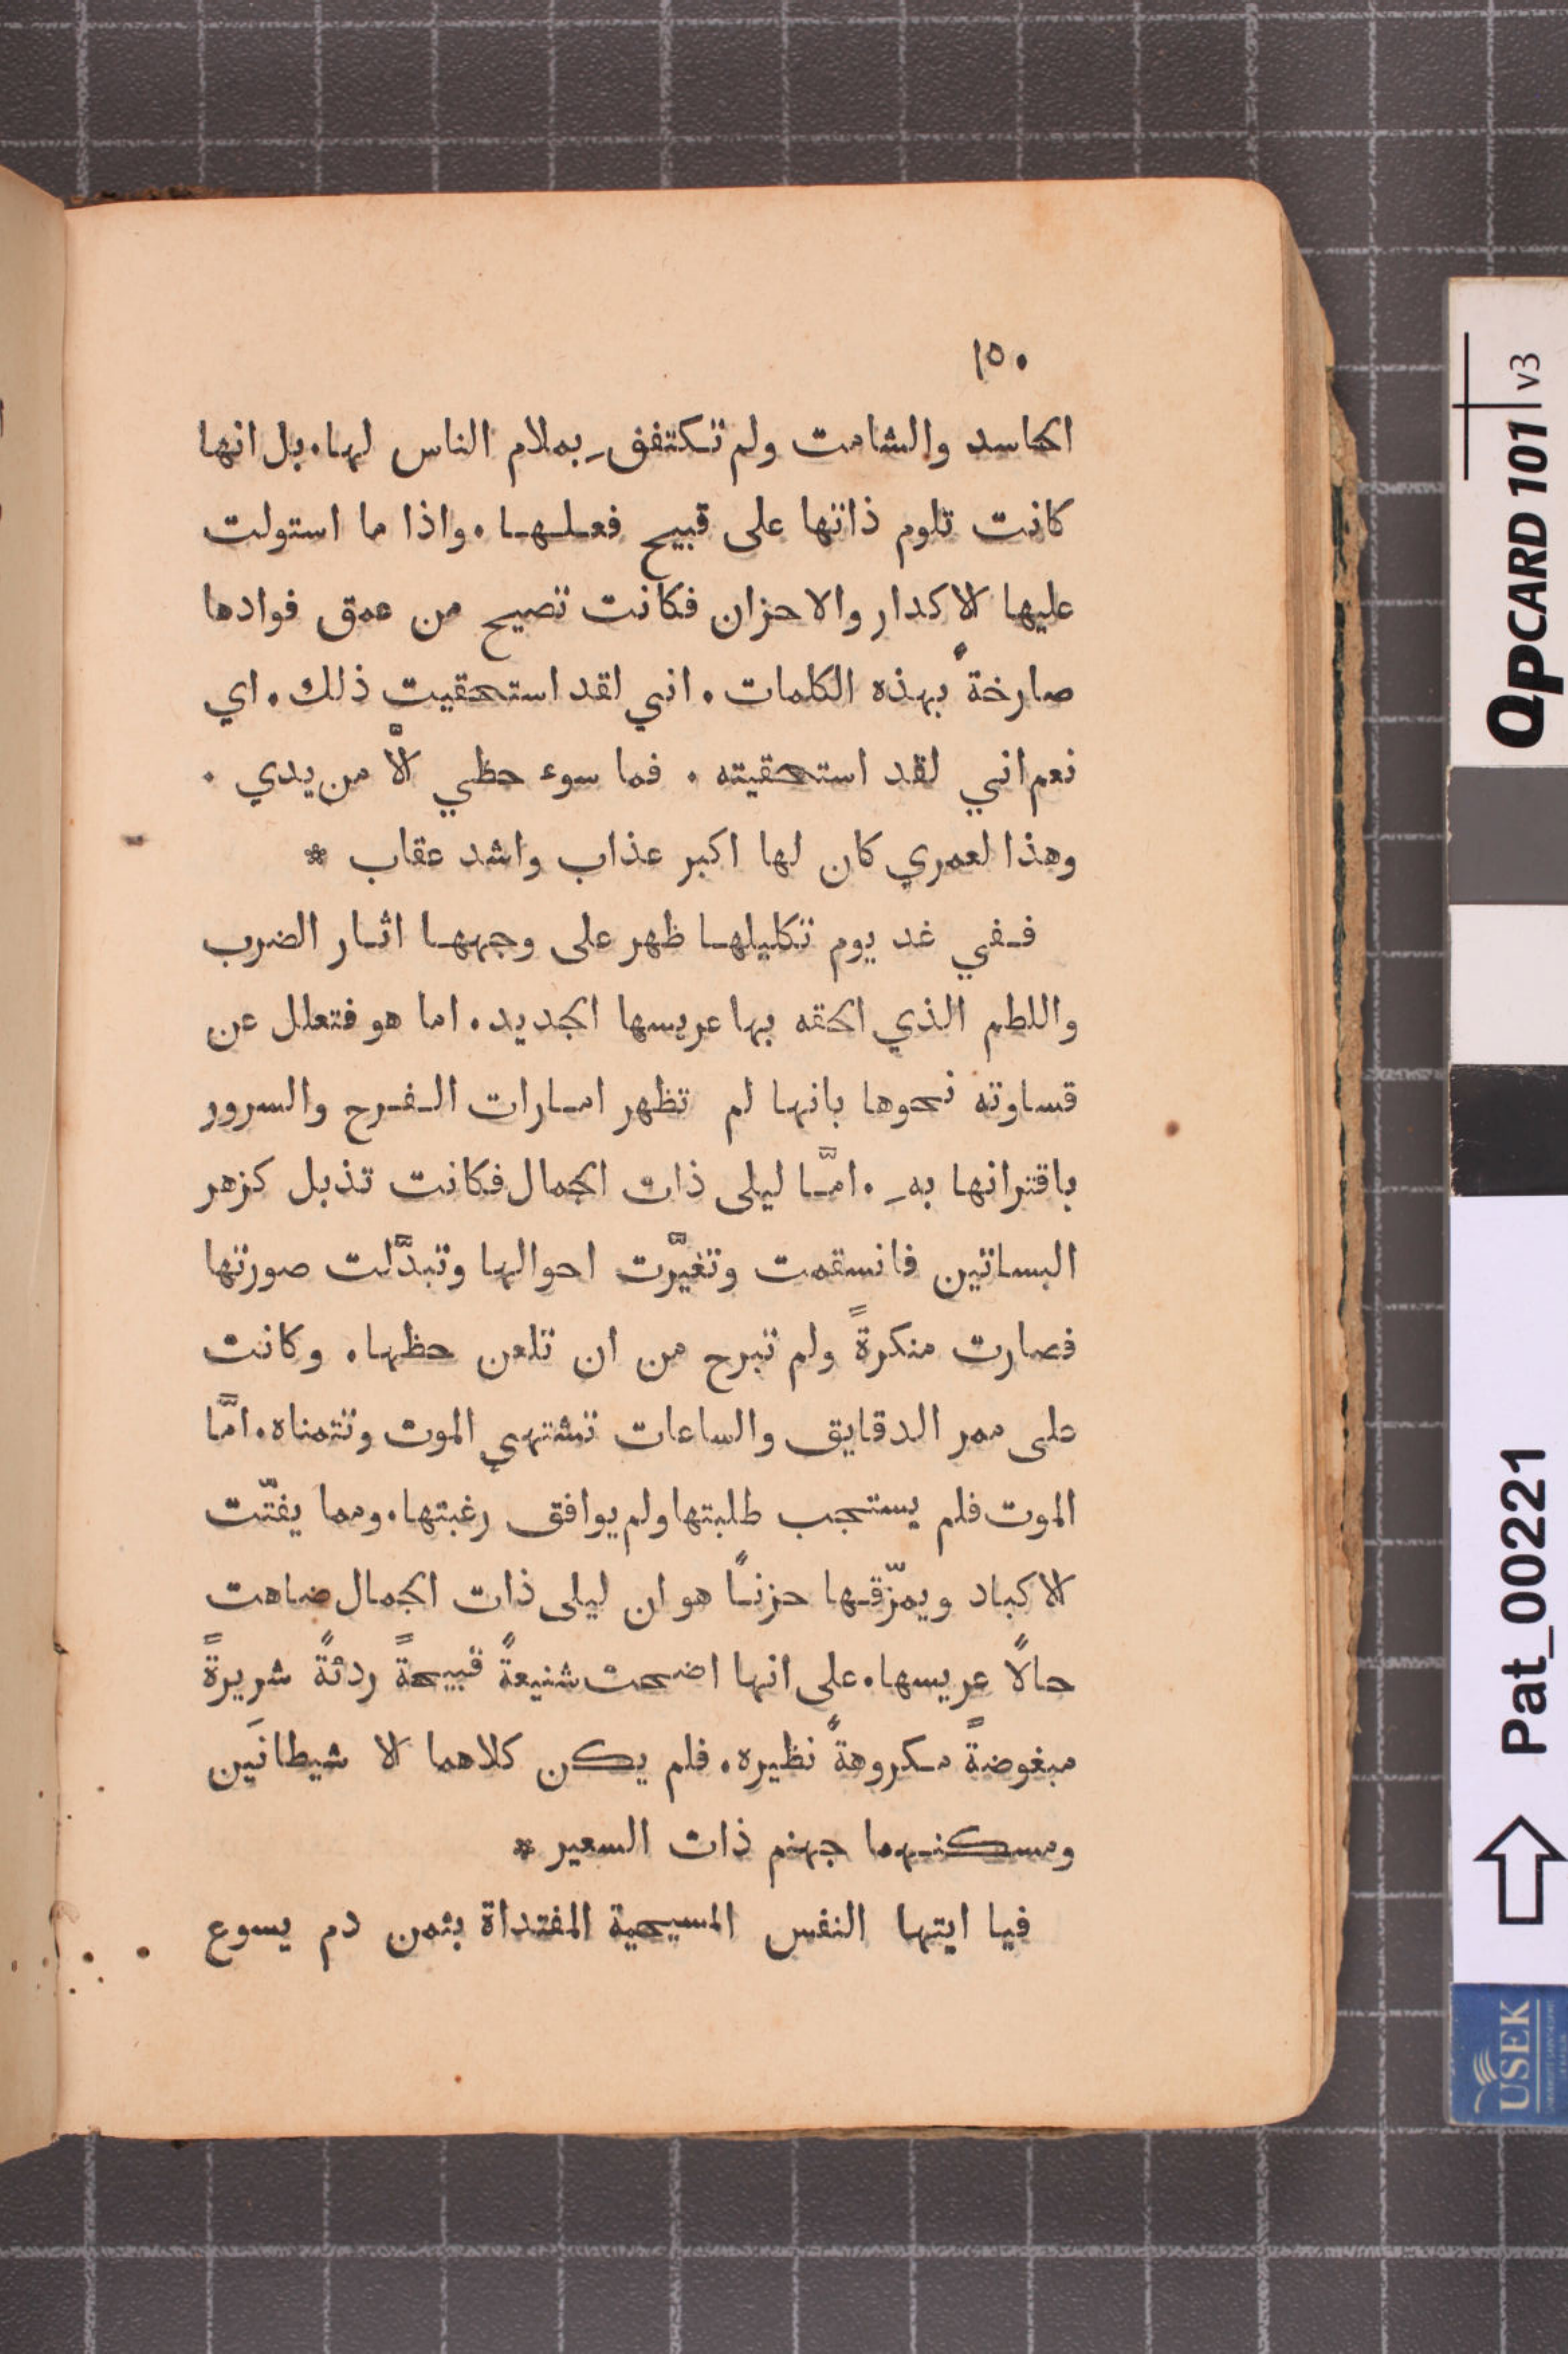 ١٥٠
الحاسد والشامت ولم تكتفق بملام الناس لها. بل انها
كانت تلوم ذاتها على قبيح فعلها. واذا ما استولت
عليها الاكدار والاحزان فكانت تصيح من عمق فوادها
صارخةً بهذه الكلمات. انني لقد استحقيت ذلك. اي
نعم انني لقد استحقيته. فما سوء حظي الَّا من يدي.
وهذا لعمري كان لها اكبر عذاب واشد عقاب *
ففي غد يوم تكليلها ظهر على وجهها اثار الضرب
واللطم الذي الحقه بها عريسها الجديد. اما هو فتعلل عن
قساوته نحوها بانها لم تظهر امارات الفرح والسرور
باقترانها بهِ. امَّا ليلى ذات الجمال فكانت تذبل كزهر
البساتين فانسقمت وتغيَّرت احوالها وتبدَّلت صورتها
فصارت منكرةً ولم تبرح من ان تلعن حظها. وكانت
على ممر الدقايق والساعات تشتهي الموت وتتمناه. امَّا
الموت فلم يستجب طلبتها ولم يوافق رغبتها. ومما يفتّت
الاكباد ويمزّقها حزنًا هو ان ليلى ذات الجمال ضاهت
حالًا عريسها. على انها اضحت شنيعةً قبيحةً ردئةً شريرةً
مبغوضةً مكروهةً نظيره. فلم يكن كلاهما الا شيطانَين
ومسكنهما جهنم ذات السعير *
فيا ايتها النفس المسيحية المفتداة بثمن دم يسوع
QPCARD 101 v3
Pat_00221
USEK